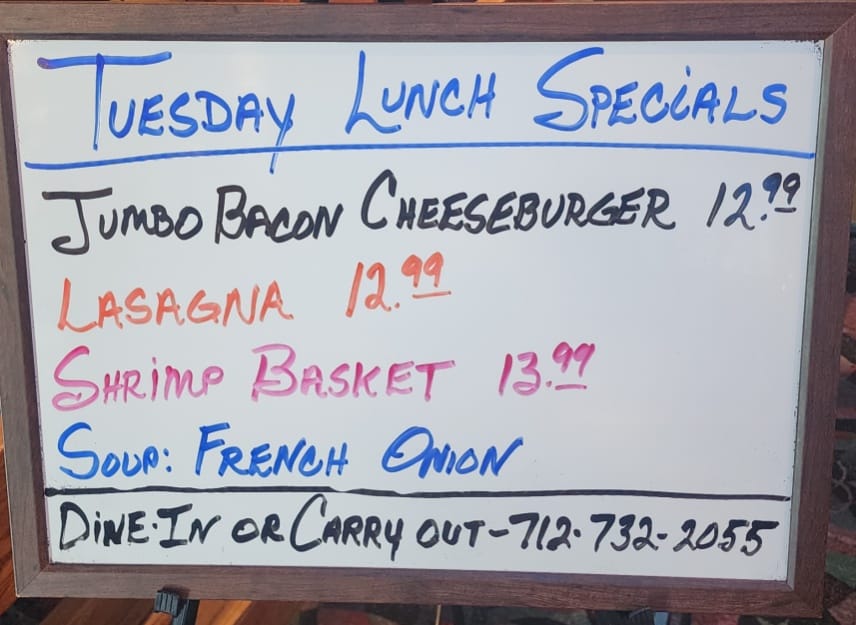 TUESDAY LUNCH SPECiALS
JUMBO BACON CHEESEBURGER 12.99
LASAGNA 12.99
SHRiMP BASKET 13.99
SOUP: FRENCH ONION
DiNE-IN OR CARRY OUT-712-732-2055